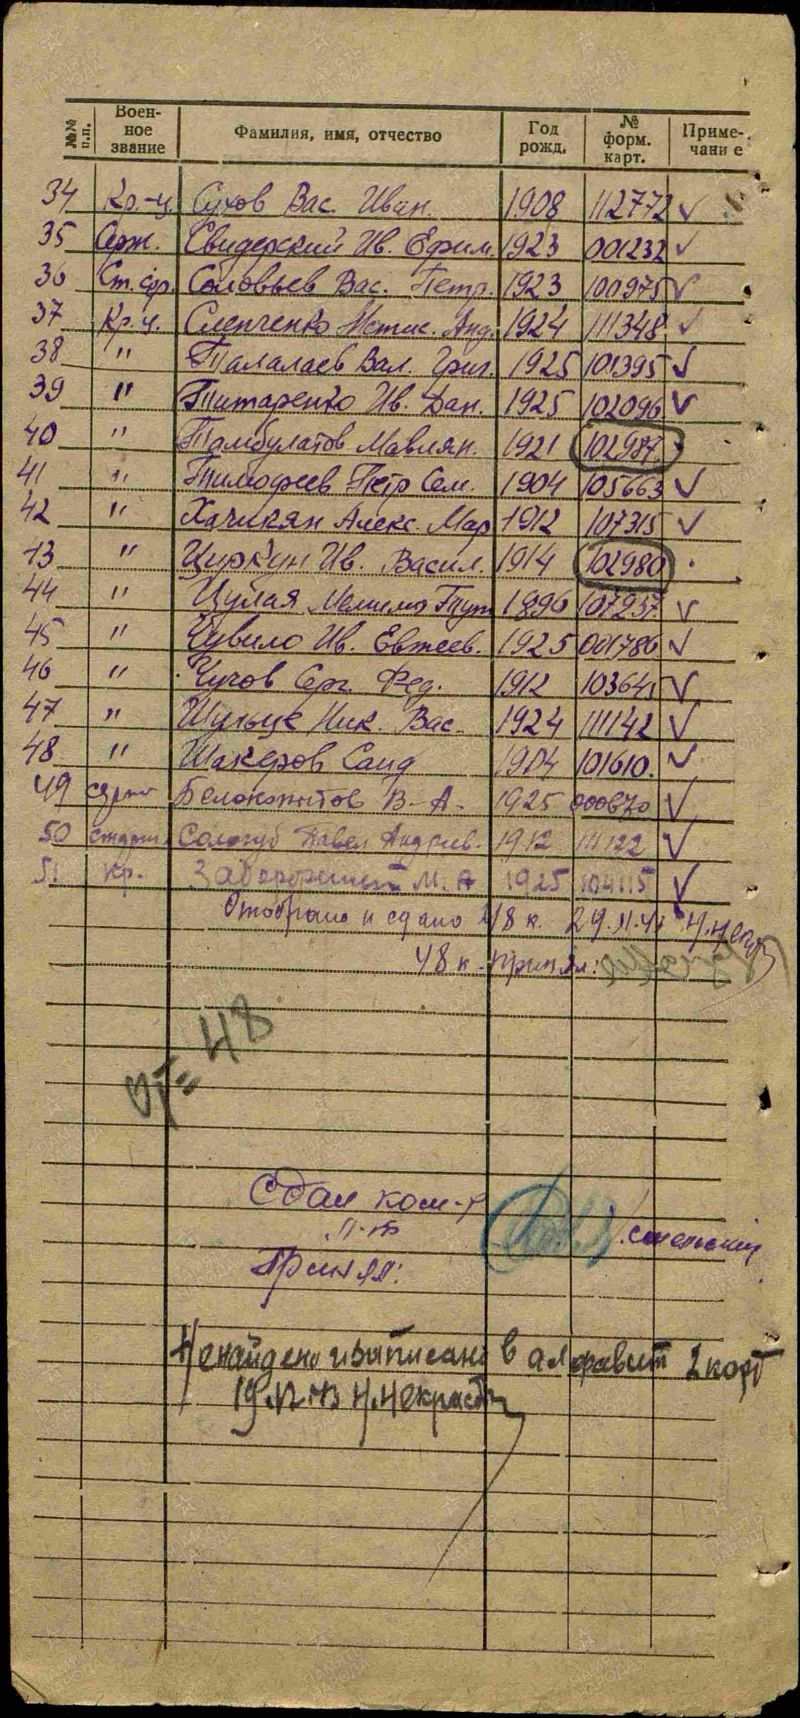 №№ п.п. Воен-ное звание Фамилия, имя, отчество Год рожд. № форм. карт. Приме-чание
34 Кр-ц. Сухов Вас. Иван. 1908 112772 ✓
35 Серж. Свидерский Ив. Ефим. 1923 001232 ✓
36 Ст. сер. Соловьев Вас. Петр. 1923 100975 ✓
37 Кр.ц. Слепченко Анд. 1924 111348 ✓
38 " Талалаев Вал. Григ. 1925 101395 ✓
39 " Титаренко Ив. Дан. 1925 102096 ✓
40 " Тамбулатов Мавлян. 1921 102987
41 " Тимофеев Петр Сем. 1904 105663 ✓
42 " Хачикян Алекс. Мар 1912 107315 ✓
43 " Циркун Ив. Васил. 1914 102980
44 " Цулая 1896 107237 ✓
45 " Чувило Ив. Евтеев. 1925 001786 ✓
46 " Чугов Серг. Фед. 1912 103641 ✓
47 " Шульце Ник. Вас. 1924 111142 ✓
48 " Шакеров Саид 1904 101610. ✓
49 Белокопытов В-А- 1925 000670 ✓
50 Сологуб Павел Андреев. 1912 111122 ✓
51 кр. М. А 1925 104115 ✓
Отобрано и сдано 48 к. 29.11.43
48 к. принял:
48
Сдал ком-р
Принял:
Не найдено и записано в алфавит 2 карт
19.12.43 Н. Некрасов